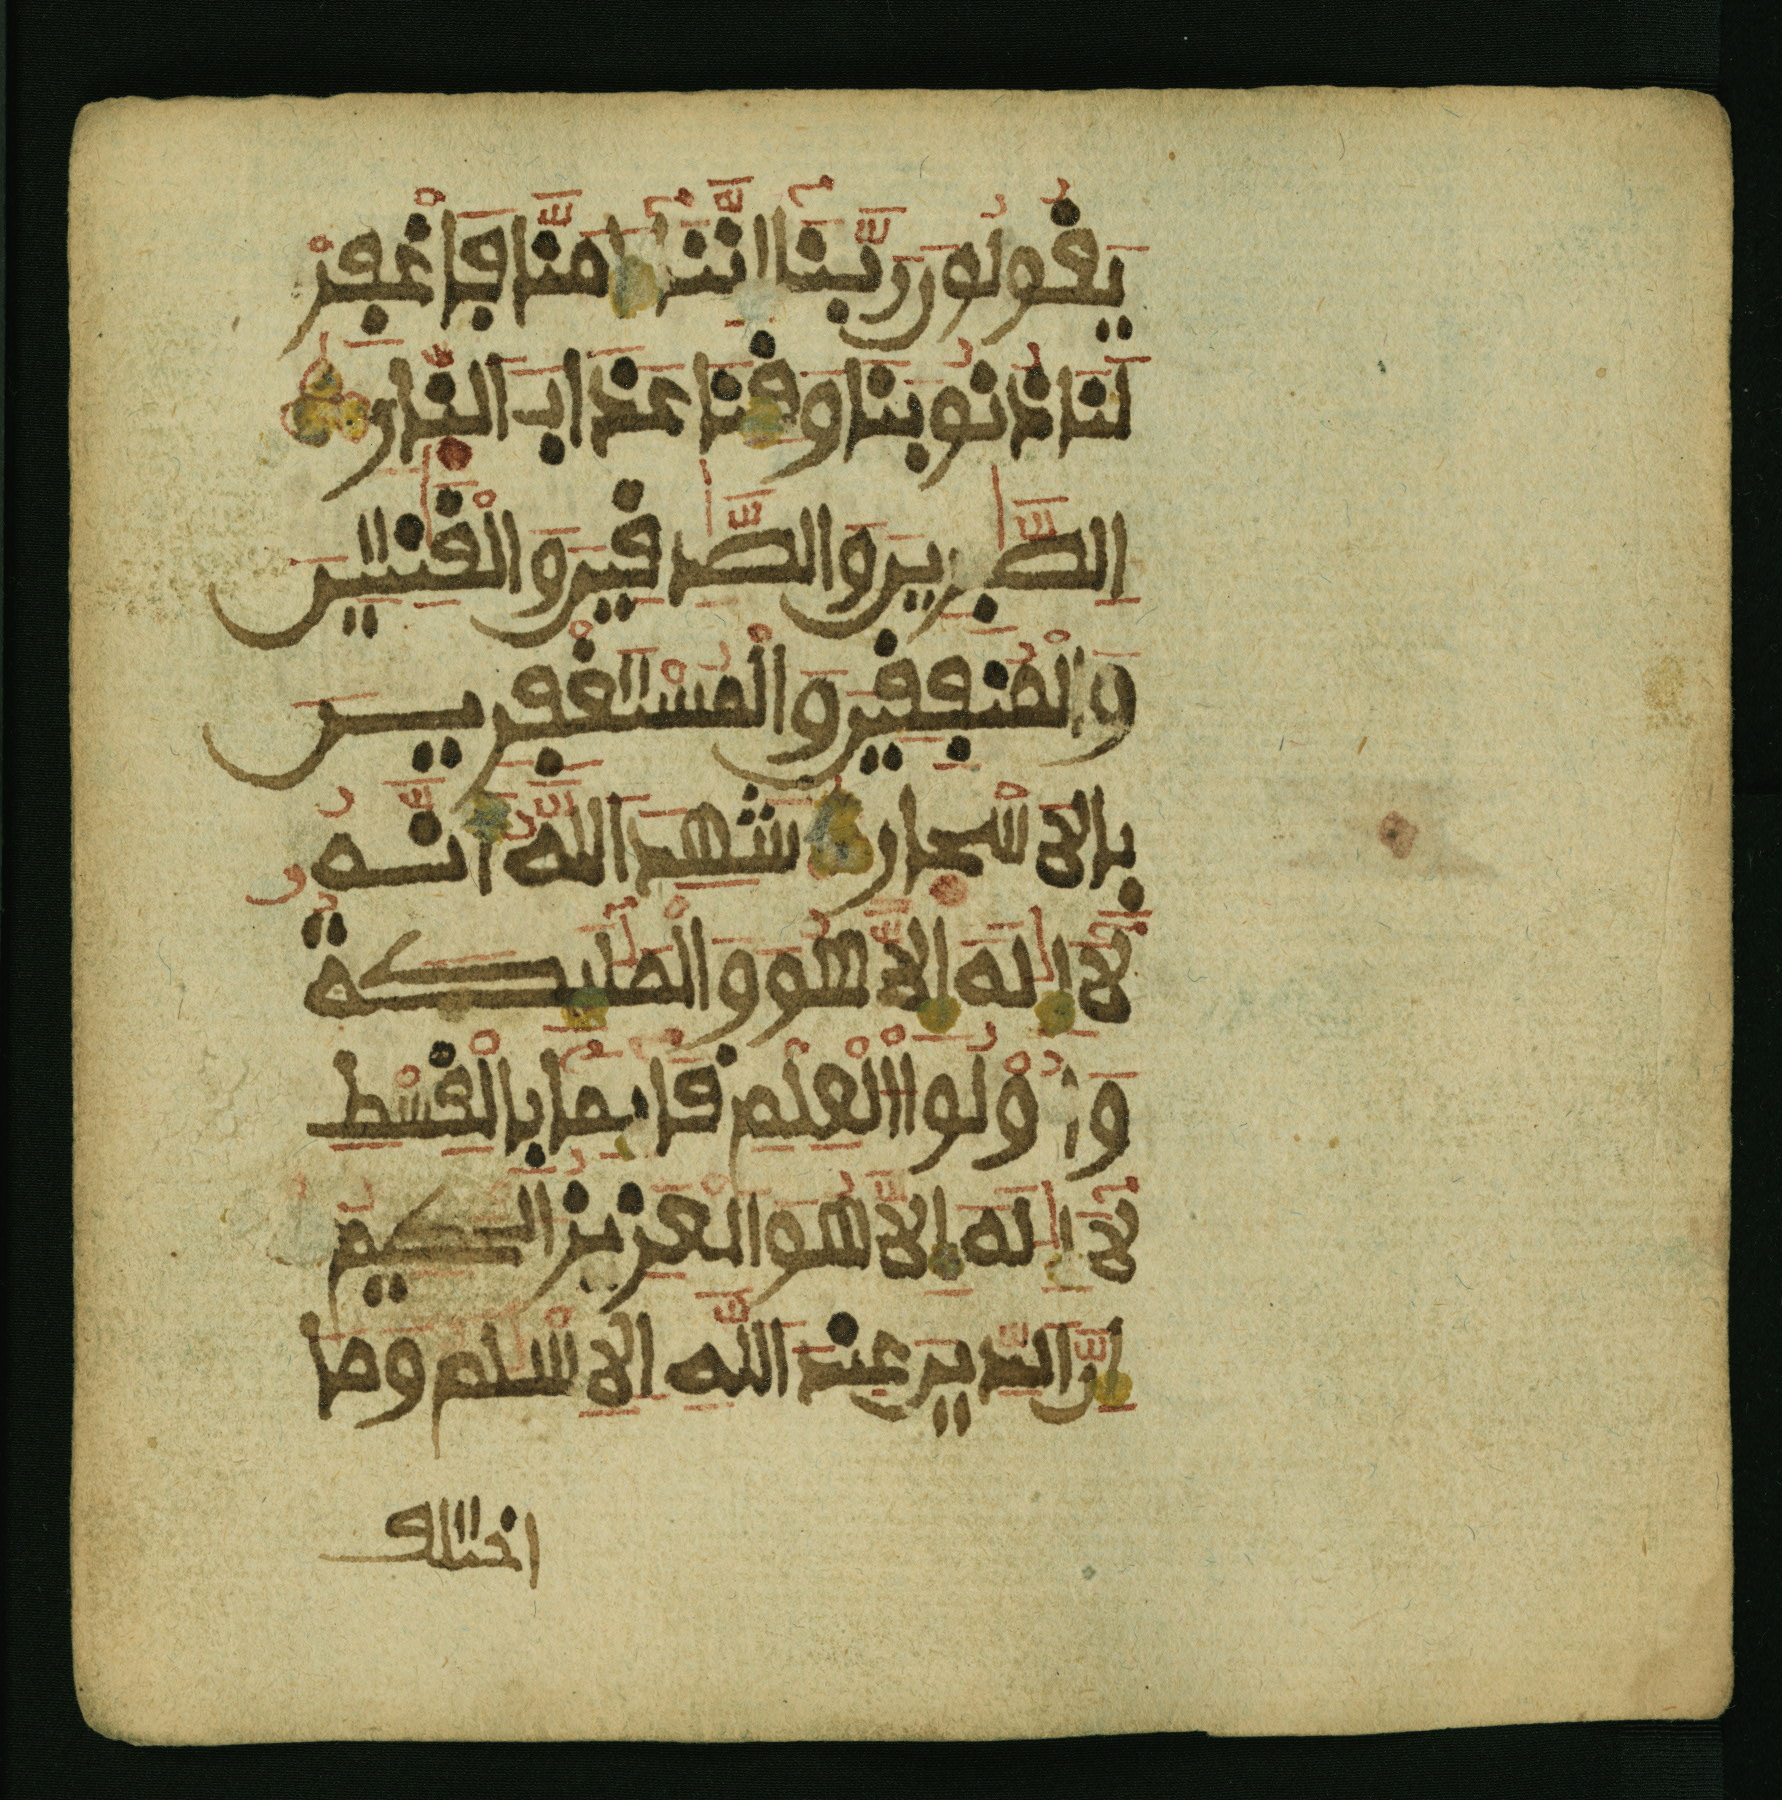 يَقُولُونَ رَبَّنَا إِنَّنَا ءَامَنَّا فَاغْفِرْ
لَنَا ذُنُوبَنَا وَقِنَا عَذَابَ النَّارِ
الصَّٰبِرِينَ وَالصَّٰدِقِينَ وَالْقَٰنِتِينَ
وَالْمُنفِقِينَ وَالْمُسْتَغْفِرِينَ
بِالَاسْحارِ شَهِدَ اللَّهُ أَنَّهُ
لَآ إِلَٰهَ إِلَّا هُوَ وَالْمَلَٰٓئِكَةُ
وَأُوْلُوا الْعِلْمِ قَآئِمًا بِالْقِسْطِ
لَآ إِلَٰهَ إِلَّا هُوَ الْعَزِيزُ الْحَكِيمُ
إِنَّ الدِّينَ عِندَ اللَّهِ الِاسْلَٰمُ وَمَا
اختلف